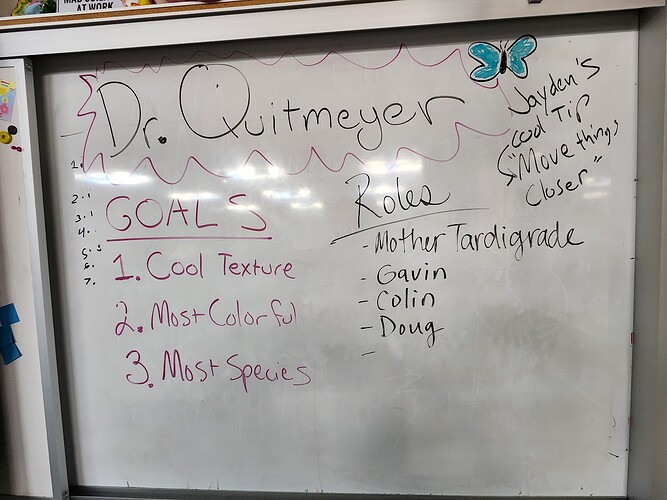 AT WORK
Dr. Quitmeyer
Jayden's
cool Tip
"Move things
Closer"
1.
2.
3.
4.
5.
6.
7.
GOALS
1. Cool Texture
2. Most Colorful
3. Most Species
Roles
- Mother Tardigrade
- Gavin
- Colin
- Doug
-